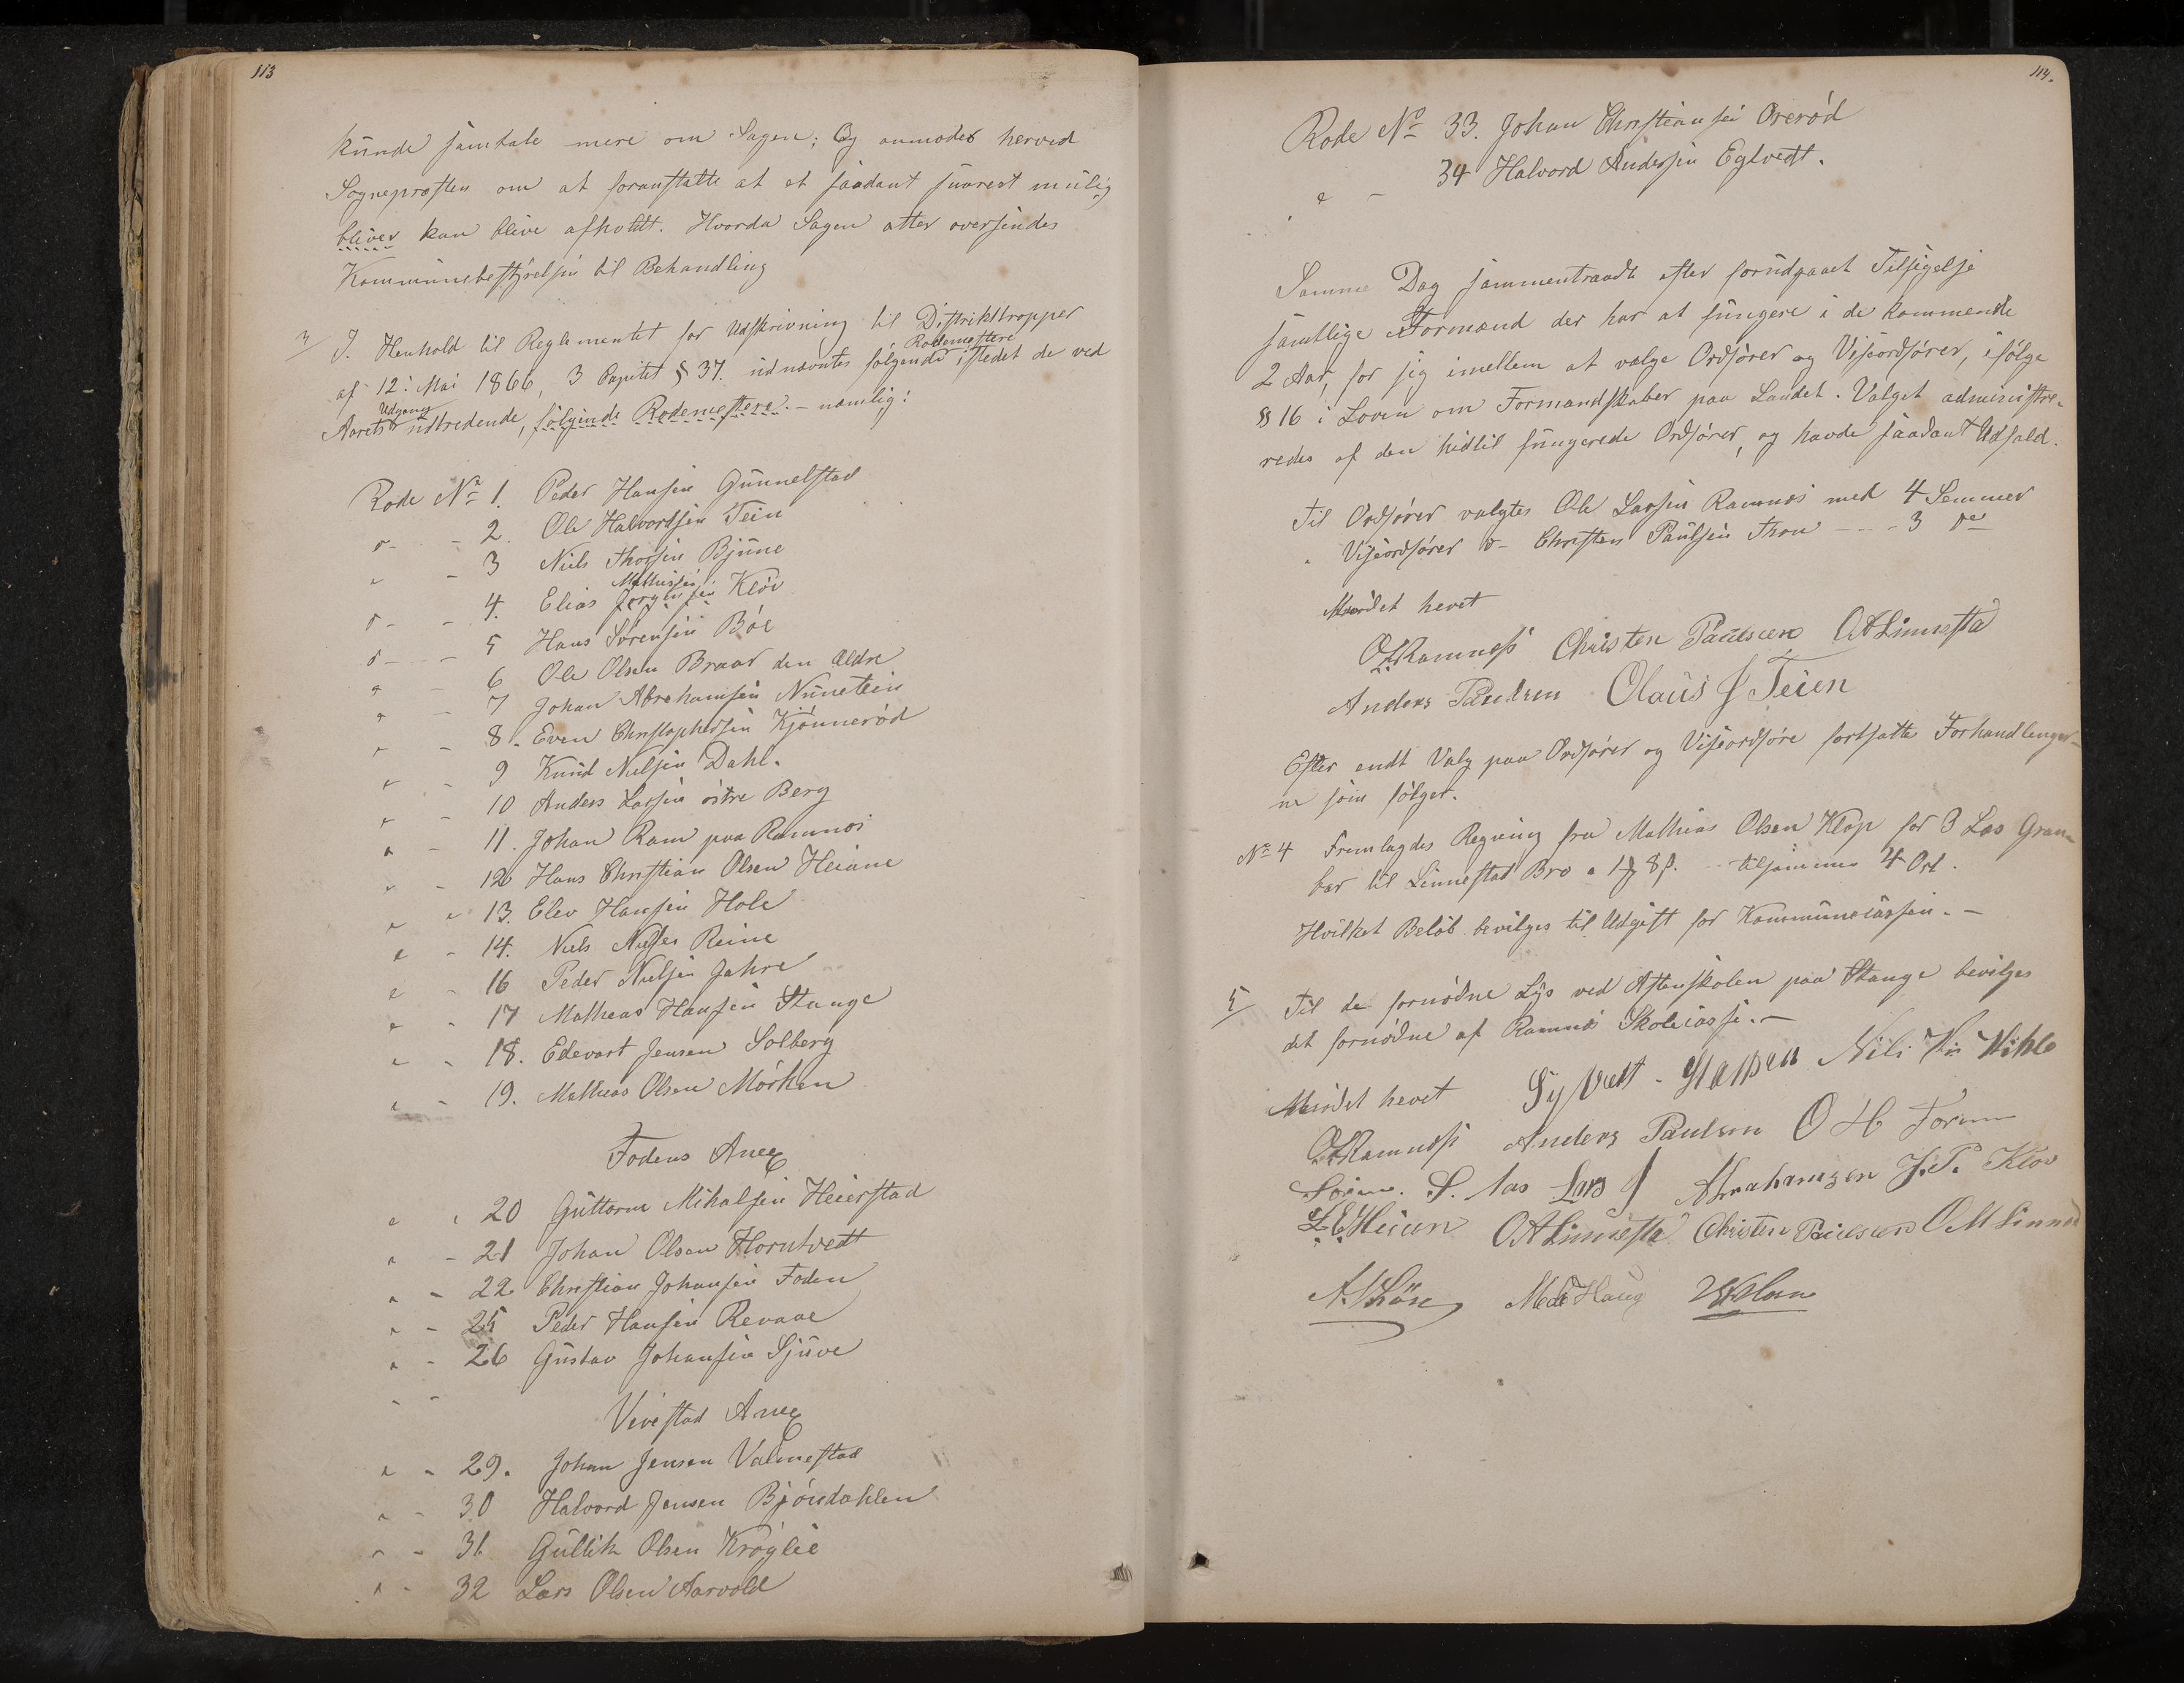 113
kunde samtale mere om Sagen; Og anmodes herved
Sognepræsten om at foranstalte at et saadant snarest mulig
bliver kan blive afholdt. Hvorda Sagen atter oversendes
Kommunebestyrelsen til Behandling
3/ I. Henhold til Reglementet for Udskrivning til Distriktstropper
af 12: Mai 1866, 3 Capitel § 37. udnævntes følgende Rodemestere istedet de ved
Aarets Udgang udtredende, følgende Rodemestere. – nemlig:
Rode No 1. Peder Hansen Gunnelstad
" - 2. Ole Halvordsen Tein
" - 3 Niels Thorsen Bjune
" - 4. Elias Jørgensen Mathisen Kløv
" - 5 Hans Sørensen Bøe
" - 6 Ole Olsen Braar den Ældre
" - 7 Johan Abrahamsen Nunetein
" - 8. Even Christophersen Kjønnerød
" - 9 Knud Nielsen Dahl.
" - 10 Anders Larsen østre Berg
" - 11. Johan Ram paa Ramnæs
" - 12 Hans Christian Olsen Heiane
" - 13. Elev Hansen Hole
" - 14. Niels Nielsen Reine
" - 16 Peder Nielsen Jahre
" - 17 Mathias Hansen Stange
" - 18. Edevart Jensen Solberg
" - 19. Mathias Olsen Mørken
Fodens Anex
" - 20 Guttorm Mikalsen Heierstad
" - 21 Johan Olsen Horntvedt
" - 22 Christian Johansen Foden
" - 25 Peder Hansen Revaae
" - 26 Gustav Johansen Sjuve
" -
Vivestad Anex
" - 29. Johan Jensen Valmestad
" - 30 Halvord Jensen Bjørndahlen
" - 31 Gullik Olsen Krøglie
" - 32 Lars Olsen Aarvold
114.
Rode No 33. Johan Christiansen Ørerød
" - 34 Halvord Andersen Eglvedt.
Samme Dag sammentraadte efter forudgaaet Tilsigelse
samtlige Formænd der har at fungere i de kommende
2 Aar, for sig imellem at vælge Ordfører og Viseordfører, ifølge
§ 16 i Loven om Formandskaber paa Landet. Valget administre-
redes af den hidtil fungerede Ordfører, og havde saadant Udfald.
Til Ordfører valgtes Ole Larsen Ramnæs med 4 Stemmer
" Viseordfører v- Christen Paulsen Thon - - - 3 do
Mødet hevet
O L Ramnæs Christen Paulsen O A Linnesta
Anders Paulsen Olaus J Teien
Efter endt Valg paa Ordfører og Viseordføre fortsatte Forhandlinger-
ne som følger.
No 4 Fremlagdes Regning fra Mathias Olsen Klop for 3 Læs Gran-
bar til Linnestad Bro a 1 ₰ 8 ſ. – tilsammen 4 Ort.
Hvilket Beløb bevilges til Udgift for Kommunecassen. –
5/ Til de fornødne Lys ved Aftenskolen paa Stange bevilges
det fornødne af Ramnæs Skolecasse. –
Mødet hevet Syvert Hansen Nils
O L Ramnæs Anders Paulsen O H Forum
Sørine. S. Aas Lars J Abrahamsen J. P. Kløv
L E Heian O A Linnesta Christen Paulsen O M Linnest